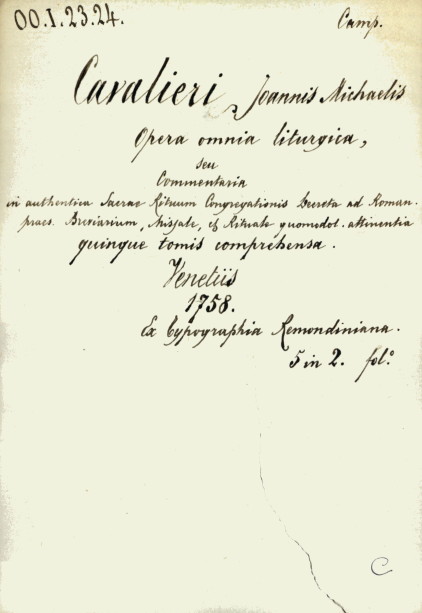 OO.I.23.24.
Camp.
Cavalieri, Joannis Michaelis
Opera omnia liturgica,
seu
Commentaria
in authentica Sacrae Rituum Congregationis Decreta ad Roman.
praes. Breviarium, Missale, et Rituale quomodol. attinentia
quinque tomis comprehensa.
Venetiis
1758.
Ex Typographia Remondiniana.
5 in 2. fol.
C